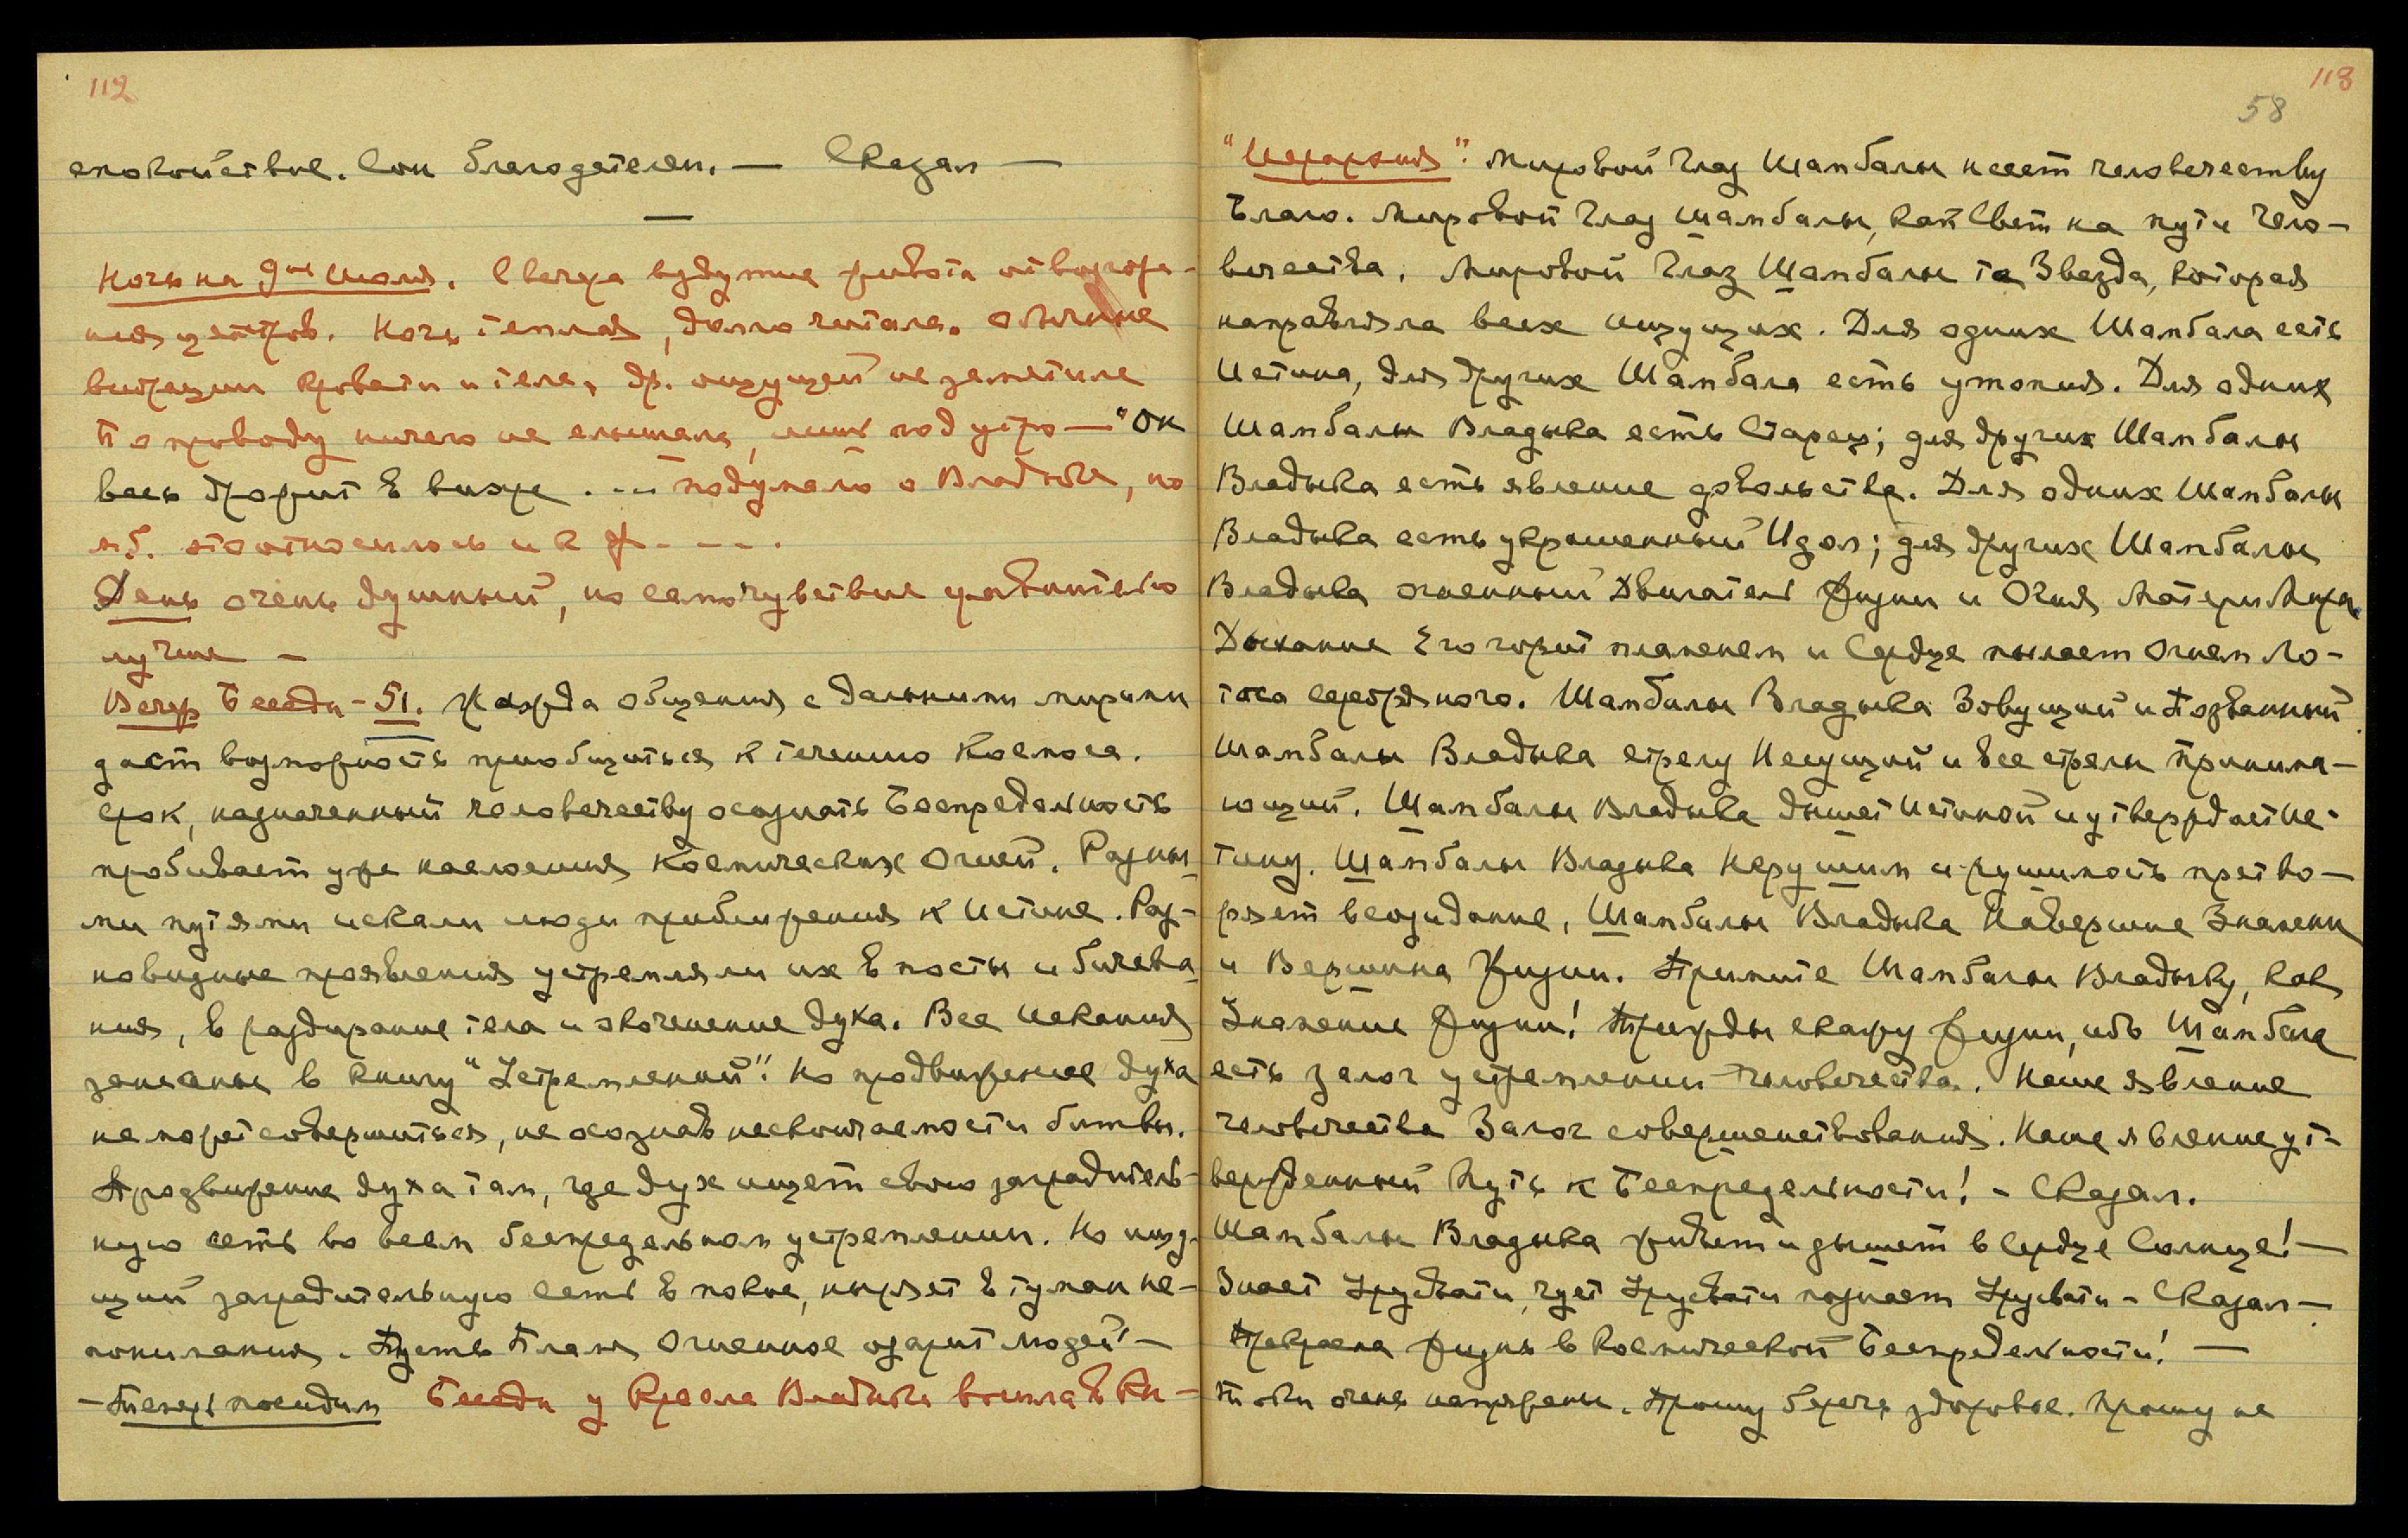 112
спокойствие. Сон благодателен. — Сказал —
Ночь на 9ое Июля. С вечера вздутие живота от возгора-
ния центров. Ночь теплая, долго читала. Обычные
вибрации кровати и тела, др. ощущей не заметила
По проводу ничего не слышала, лишь под утро — "Он
весь дрожит в вихре . ... подумала о Владыке, но
м.б. это относилось и к Ф. - - - .
День очень душный, но самочувствие сравнительно
лучше —
Вечер Беседы - 51. Жажда общения с дальними мирами
даст возможность приобщиться к течению Космоса.
Срок, назначенный человечеству осознать Беспредельность
пробивает уже наслоения Космических Огней. Разны-
ми путями искали люди приближения к Истине. Раз-
новидные проявления устремляли их в посты и бичева-
ния, в раздирание тела и окоченение духа. Все искания
записаны в книгу "Устремлений". Но продвижение духа
не может совершиться, не осознав нескончаемости битвы.
Продвижение духа там, где дух ищет свою заградитель-
ную сеть во всем беспредельном устремлении. Но ищу-
щий заградительную сеть в покое, ныряет в туман не-
понимания. Пусть Пламя Огненное озарит людей! —
— Теперь посидим Беседы у Кресла Владыки вошла в Кн-
118
58
"Иерархия". Мировой Глаз Шамбалы несет человечеству
Благо. Мировой Глаз Шамбалы, как Свет на пути чело-
вечества. Мировой Глаз Шамбалы та Звезда, которая
направляла всех ищущих. Для одних Шамбала есть
Истина, для других Шамбала есть утопия. Для одних
Шамбалы Владыка есть Старец; для других Шамбалы
Владыка есть явление довольства. Для одних Шамбалы
Владыка есть украшенный Идол; для других Шамбалы
Владыка огненный Двигатель Жизни и Огня Матери Мира.
Дыхание Его горит пламенем и Сердце пылает Огнем Ло-
тоса серебряного. Шамбалы Владыка Зовущий и Позванный
Шамбалы Владыка стрелу Несущий и все стрелы Принима-
ющий. Шамбалы Владыка дышет Истиной и утверждает Ис-
тину. Шамбалы Владыка Нерушим и рушимость претво-
ряет в созидание. Шамбалы Владыка Навершие Знамени
и Вершина Жизни. Примите Шамбалы Владыку, как
Знамение Жизни! Трижды скажу жизни, ибо Шамбала
есть залог устремлении человечества. Наше явление
человечества Залог совершенствования. Наше явление ут-
вержденный Путь к Беспредельности! - Сказал.
Шамбалы Владыка живет и дышет в Сердце Солнца! —
Знает Урусвати, чует Урусвати познает Урусвати - Сказал —
Прекрасна Жизнь в Космической Беспредельности! —
Токи очень напряжены. Прошу беречь здоровье. Прошу не